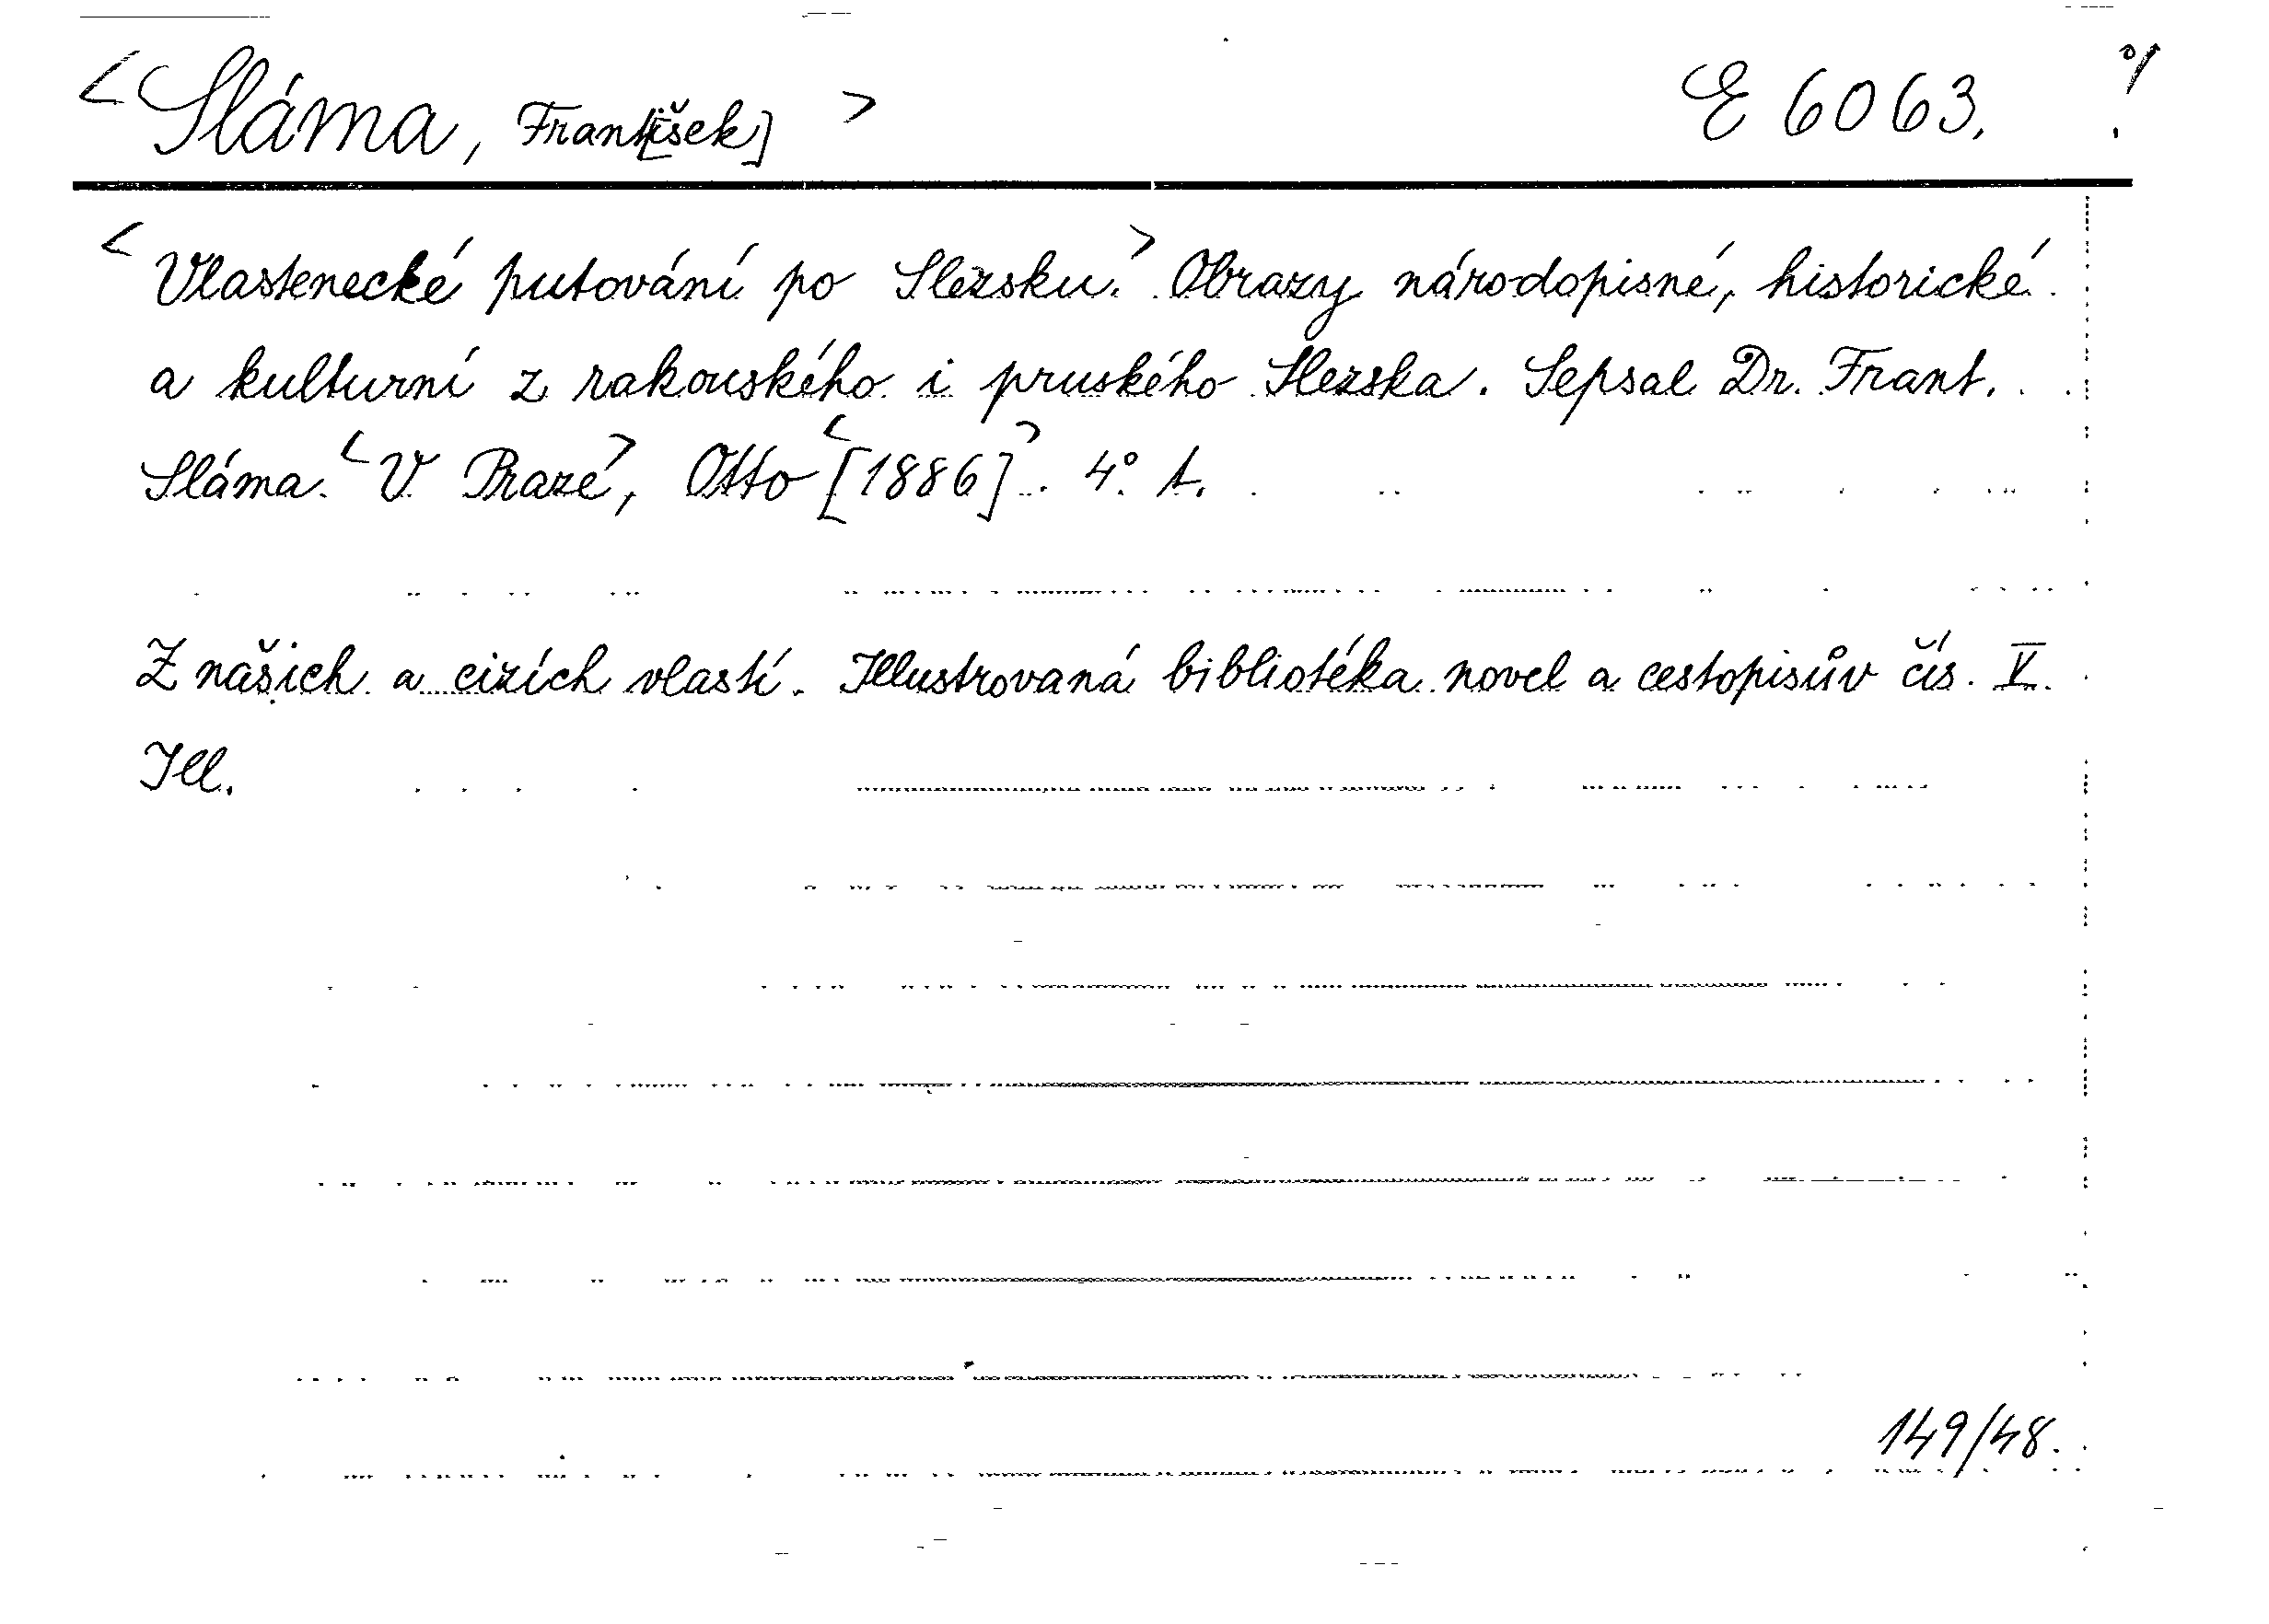 <Sláma, Frant[išek]> E 6063.
<Vlastenecké putování po Slezsku.> Obrazy národopisné, historické
a kulturní z rakouského i pruského Slezska. Sepsal Dr. Frant.
Sláma. <V Praze>, Otto <[1886]>. 4°. A.
Z našich a cizích vlastí. Illustrovaná bibliotéka novel a cestopisův čís. V.
Ill.
149/48.